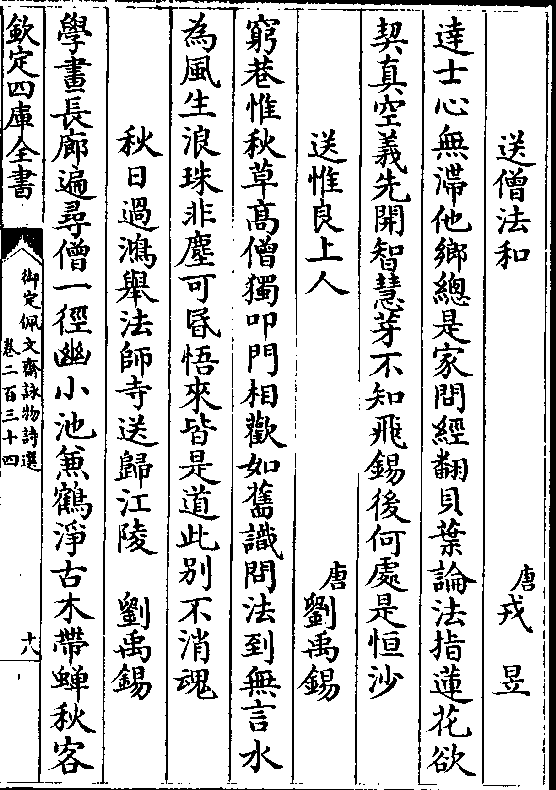 送僧法和 唐戎昱
達士心無滯他鄉總是家問經翻貝葉論法指蓮花欲
契真空義先開智慧芽不知飛錫後何處是恒沙
送惟良上人 唐劉禹錫
窮巷惟秋草髙僧獨叩門相歡如舊識問法到無言水
為風生浪珠非塵可昬悟來皆是道此别不消魂
秋日過鴻舉法師寺送歸江陵 劉禹錫
學畫長廊遍尋僧一徑幽小池兼鶴淨古木帶蟬秋客
欽定四庫全書
御定佩文齋詠物詩選
卷二百三十四
十八